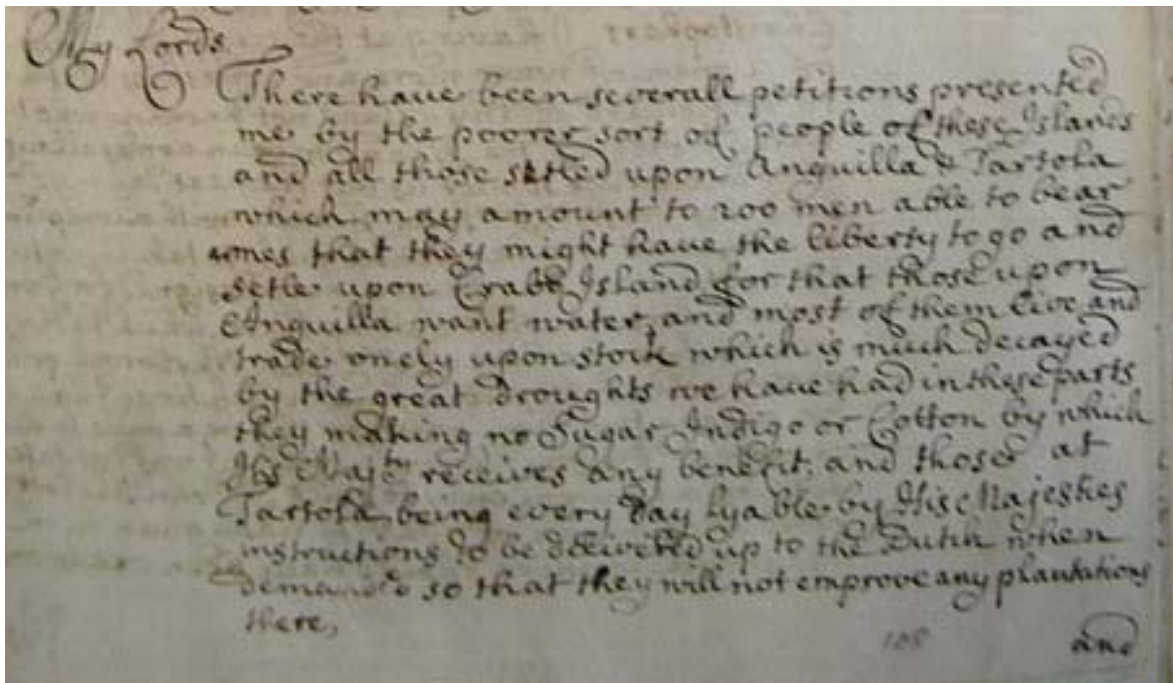 My Lords
There have been severall petitions presented
me by the poorer sort of people of these Islands
and all those setled upon Anguilla & Tartola
which may amount to 200 men able to bear
armes that they might have the liberty to go and
Setle upon Crabb Island for that those upon
Anguilla want water, and most of them live and
trade onely upon stock which is much decayed
by the great droughts we have had in these parts
they making no Sugar Indigo or Cotton by which
His Majty receives any benefit. and those at
Tartola being every day lyable by His Majesties
instructions to be delivered up to the Dutch when
demanded so that they will not emprove any plantations
there,
108
and